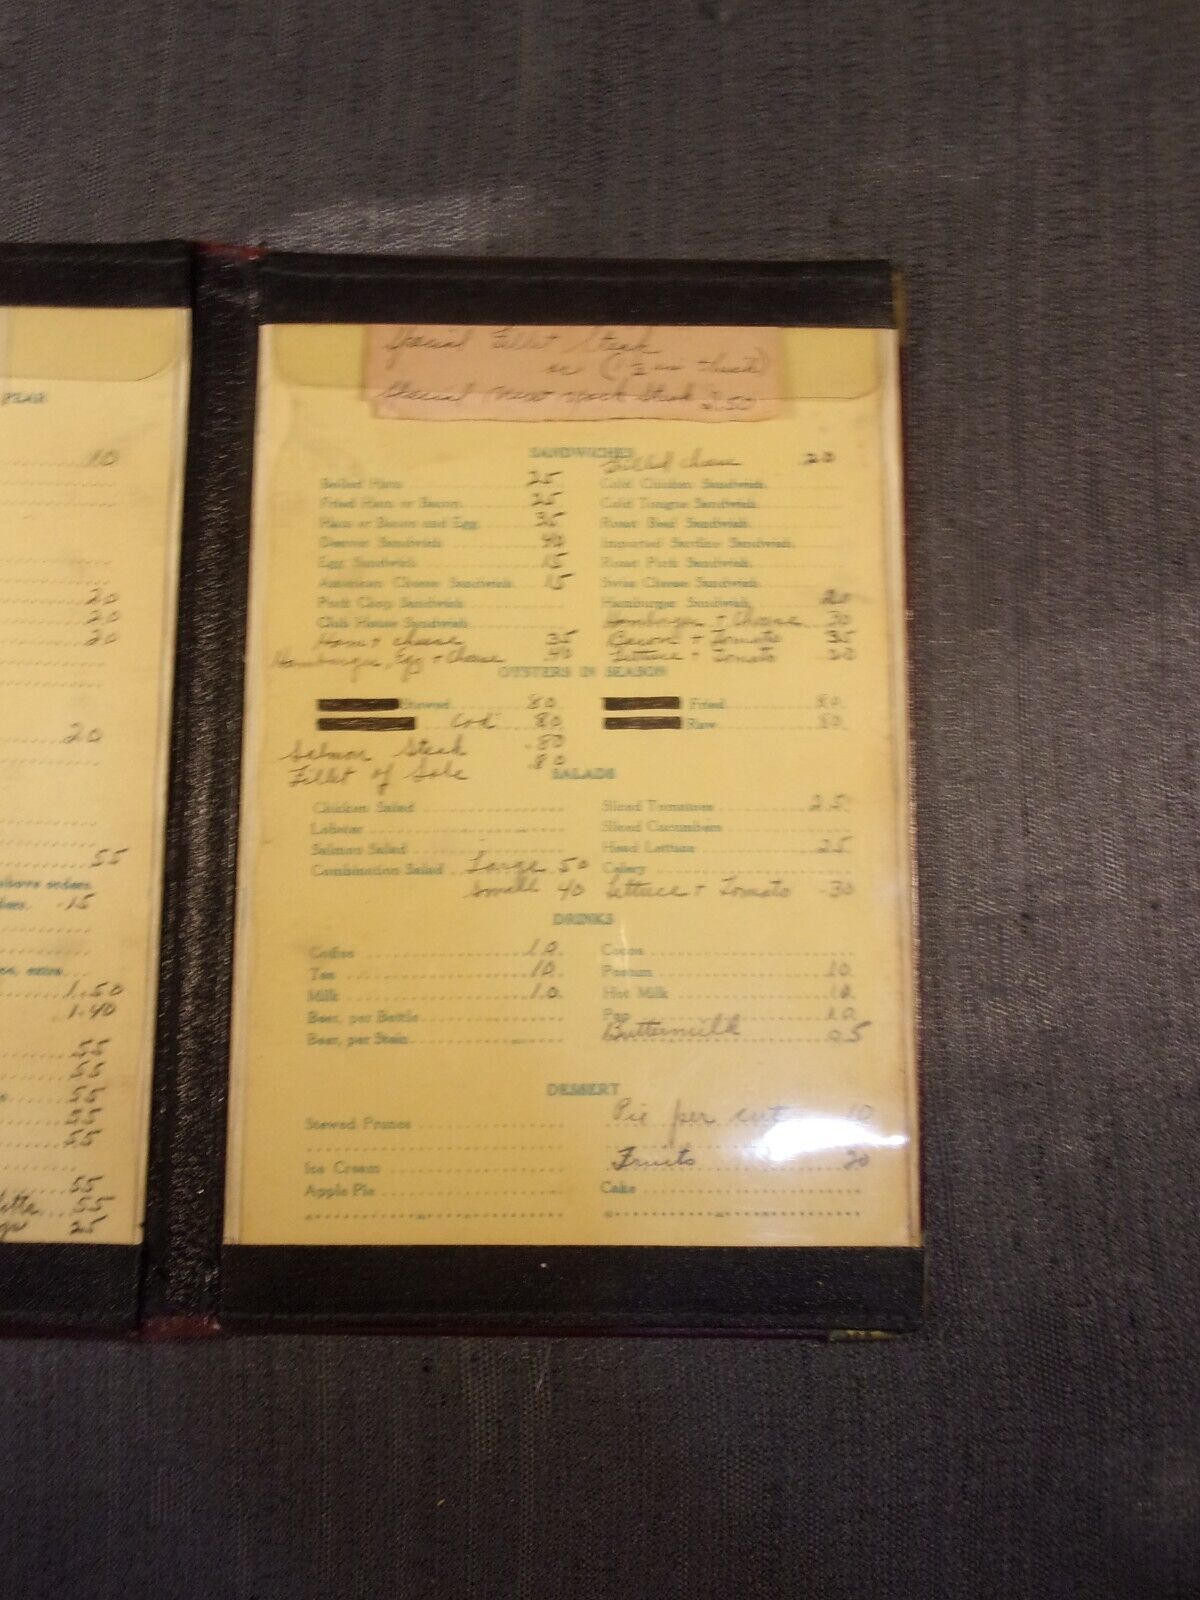 PEAR
10
20
20
20
20
55
above orders
15
extra
1.50
1.40
55
55
55
55
55
55
55
25
Special Fillet Steak
or (2 in thick)
Special New York Steak 2.50
SANDWICHES
Grilled Cheese .20
Boiled Ham 25
Fried Ham or Bacon 25
Ham or Bacon and Egg 35
Denver Sandwich 40
Egg Sandwich 15
American Cheese Sandwich 15
Pork Chop Sandwich
Club House Sandwich
Ham + Cheese 35
Hamburger, Egg + Cheese .40
Cold Chicken Sandwich
Cold Tongue Sandwich
Roast Beef Sandwich
Imported Sardine Sandwich
Roast Pork Sandwich
Swiss Cheese Sandwich
Hamburger Sandwich 20
Hamburger + Cheese 30
Bacon + Tomato 35
Lettuce + Tomato 20
OYSTERS IN SEASON
Stewed 80
Cod 80
Salmon Steak .80
Fillet of Sole .80
Fried 80
Raw 80
SALADS
Chicken Salad
Lobster
Salmon Salad
Combination Salad Large 50
Small 40
Sliced Tomatoes 25
Sliced Cucumbers
Head Lettuce 25
Celery
Lettuce + Tomato .30
DRINKS
Coffee 10
Tea 10
Milk 10
Beer, per Bottle
Beer, per Stein
Cocoa
Postum 10
Hot Milk 10
Pop 10
Buttermilk 05
DESSERT
Stewed Prunes
Ice Cream
Apple Pie
Pie per cut 10
Fruits 20
Cake